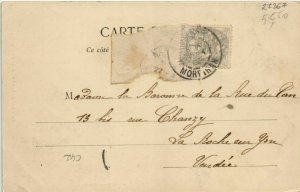 CARTE
Ce côté
MORTAGN
Madame la Baronne de la Rue du Can
13 bis rue Chanzy
La Roche sur Yon
Vendée